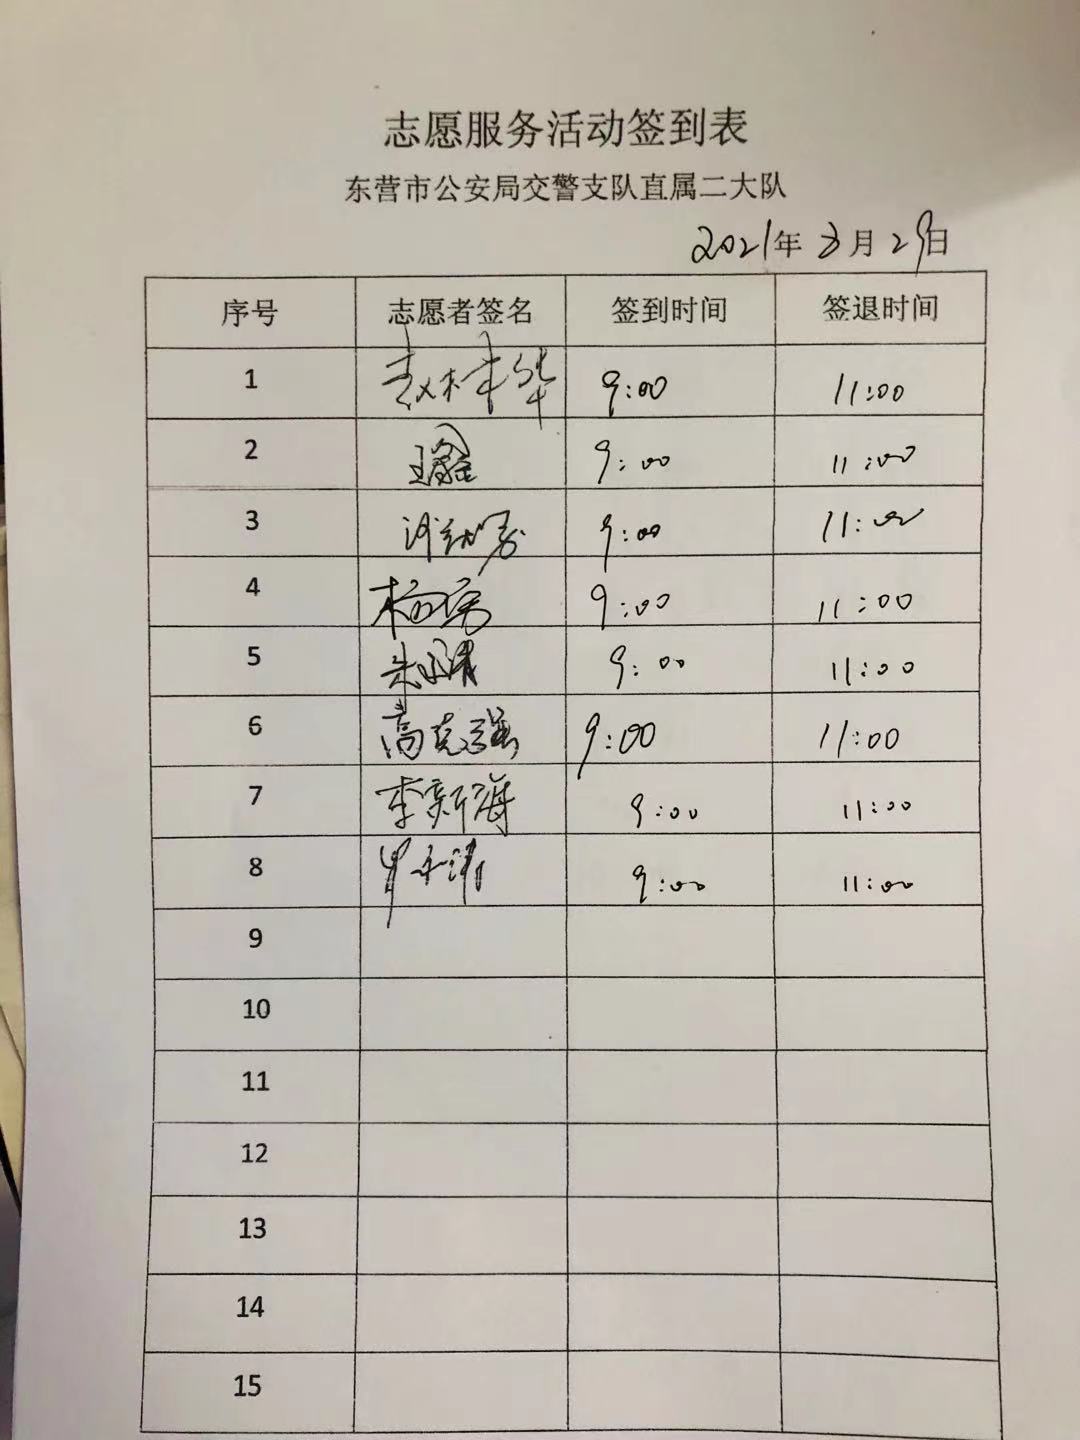 志愿服务活动签到表
东营市公安局交警支队直属二大队
2021年3月29日
序号 志愿者签名 签到时间 签退时间
1 9:00 11:00
2 9:00 11:00
3 9:00 11:00
4 9:00 11:00
5 9:00 11:00
6 高克强 9:00 11:00
7 李新海 9:00 11:00
8 9:00 11:00
9
10
11
12
13
14
15